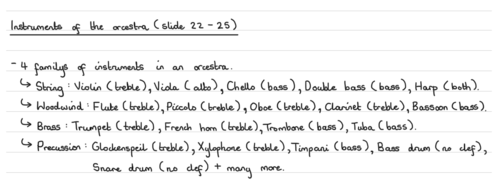 Instruments of the orcestra (slide 22 - 25)
- 4 familys of instruments in an orcestra.
↳ String : Violin (treble), Viola (alto), Chello (bass), Double bass (bass), Harp (both).
↳ Woodwind : Flute (treble), Piccolo (treble), Oboe (treble), Clarinet (treble), Bassoon (bass).
↳ Brass : Trumpet (treble), French horn (treble), Trombone (bass), Tuba (bass).
↳ Precussion : Glockenspeil (treble), Xylophone (treble), Timpani (bass), Bass drum (no clef),
Snare drum (no clef) + many more.